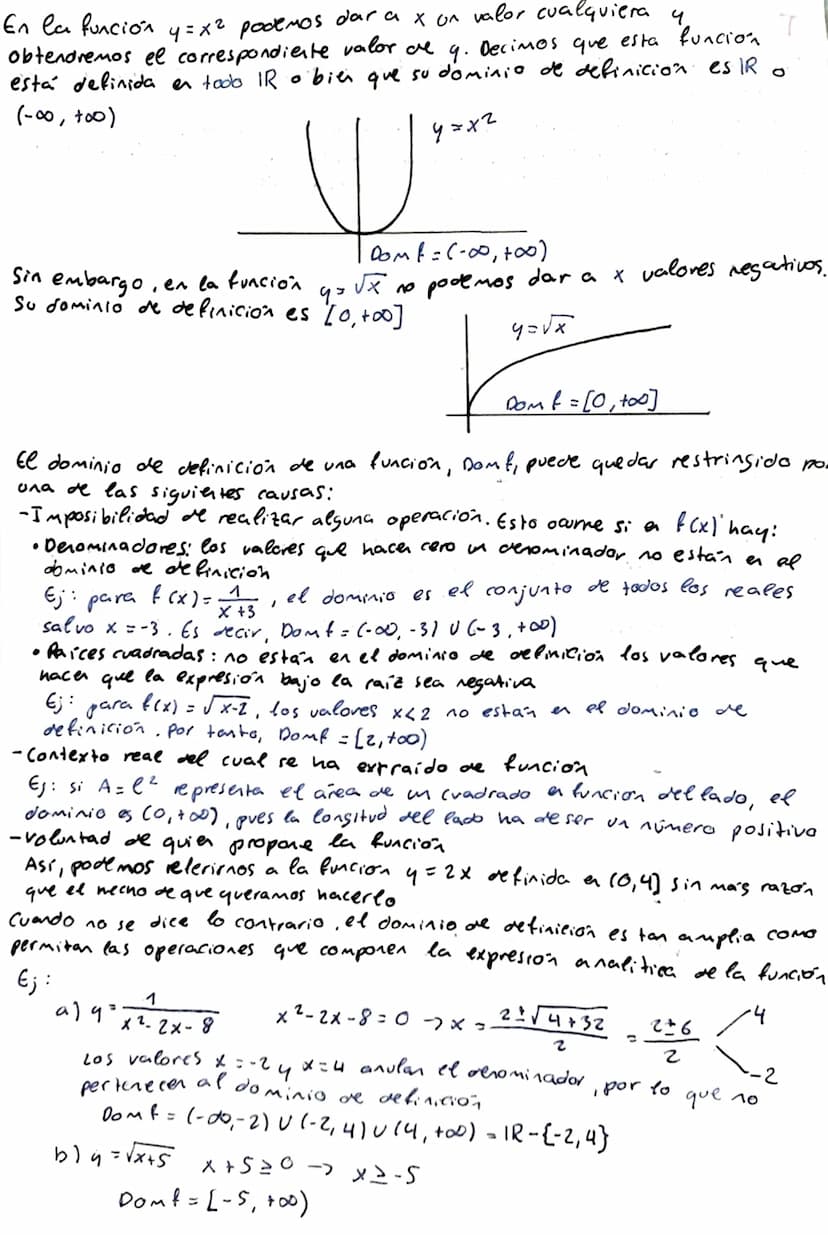 En la función y=x² podemos dar a x un valor cualquiera y
7
obtendremos el correspondiente valor de y. Decimos que esta funcion
está definida en todo IR o bien que su dominio de definición es IR o
(-∞, +∞)
y=x²
Dom f = (-∞, +∞)
Sin embargo, en la función y=√x no podemos dar a x valores negativos.
Su dominio de definición es [0,+∞]
y=√x
Dom f = [0, +∞]
El dominio de definición de una función, Dom f, puede quedar restringido po
una de las siguientes causas:
-Imposibilidad de realizar alguna operación. Esto ocurre si en f(x) hay:
• Denominadores: los valores que hacen cero un denominador no están en al
dominio de definición
Ej: para f(x) = 1/(x+3), el dominio es el conjunto de todos los reales
salvo x=-3. Es decir, Dom f = (-∞, -3) U (-3, +∞)
• Raíces cuadradas: no están en el dominio de definición los valores que
hacen que la expresión bajo la raíz sea negativa
Ej: para f(x) = √x-2, los valores x<2 no están en el dominio de
definición. Por tanto, Dom f = [2, +∞)
- Contexto real del cual se ha extraído de función
Ej: si A = l² representa el área de un cuadrado en función del lado, el
dominio es (0, +∞), pues la longitud del lado ha de ser un número positivo
-Voluntad de quien propone la función
Así, podemos referirnos a la función y = 2x definida en (0,4] sin más razón
que el hecho de que queramos hacerlo
Cuando no se dice lo contrario, el dominio de definición es tan amplia como
permitan las operaciones que componen la expresión analítica de la función
Ej:
a) y = 1/(x²-2x-8) x²-2x-8=0 → x = (2±√4+32)/2 = (2±6)/2 4
-2
Los valores x=-2 y x=4 anulan el denominador, por lo que no
pertenecen al dominio de definición
Dom f = (-∞,-2) U (-2, 4) U (4, +∞) = IR-{-2,4}
b) y = √x+5 x+5≥0 → x≥-5
Dom f = [-5, +∞)